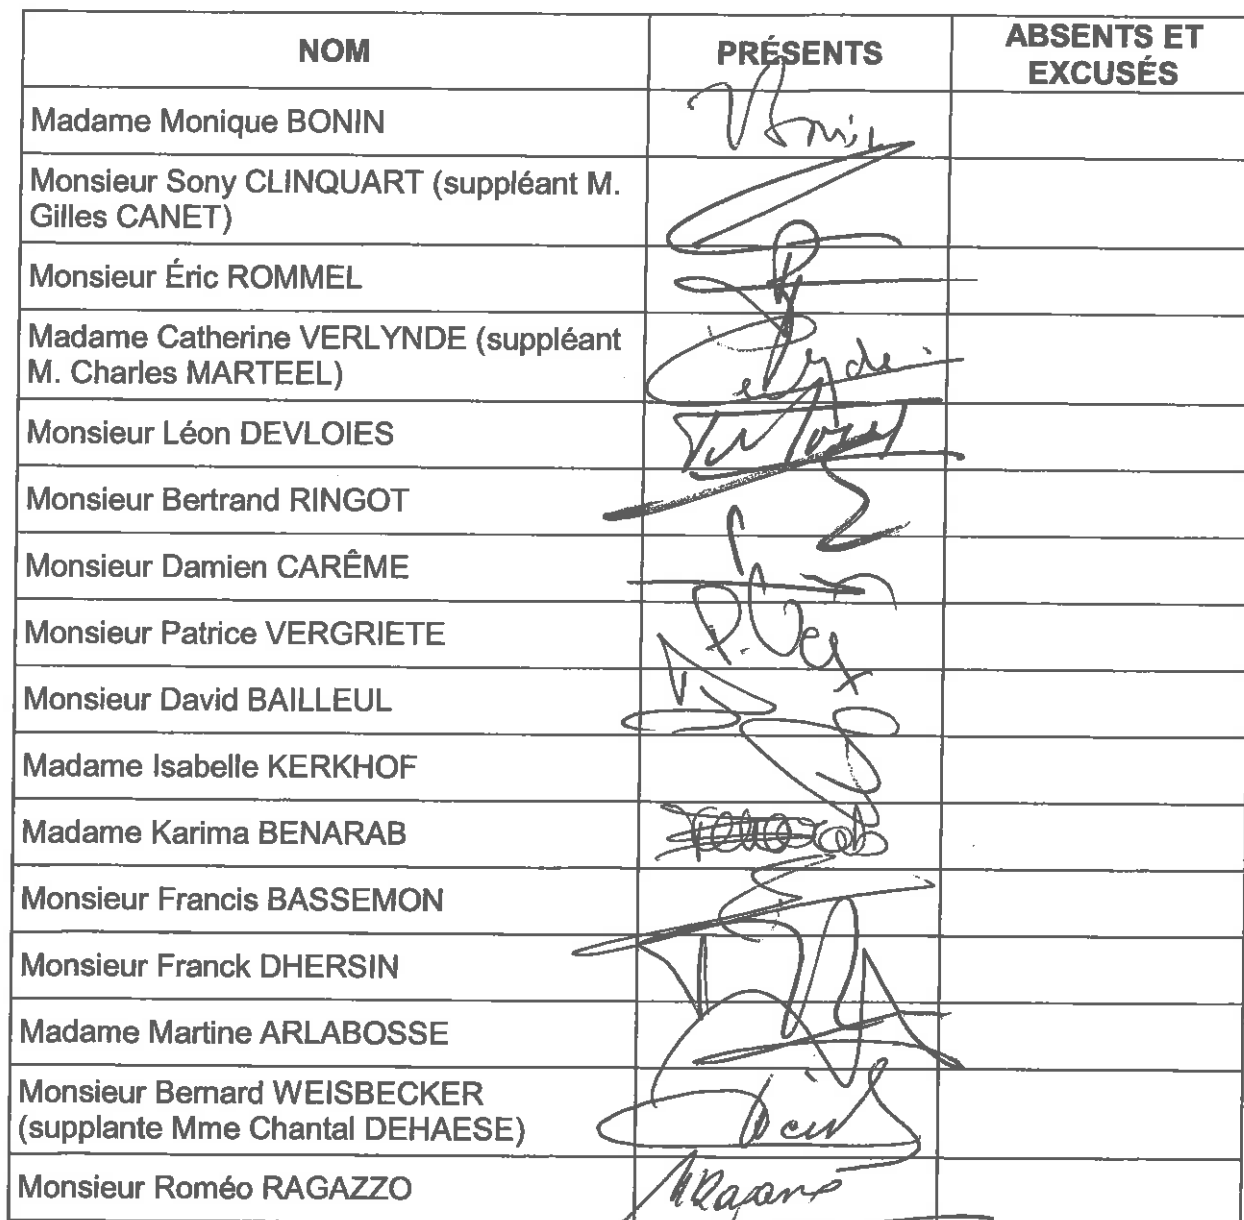 NOM PRÉSENTS ABSENTS ET
EXCUSÉS
Madame Monique BONIN
Monsieur Sony CLINQUART (suppléant M.
Gilles CANET)
Monsieur Éric ROMMEL
Madame Catherine VERLYNDE (suppléant
M. Charles MARTEEL)
Monsieur Léon DEVLOIES
Monsieur Bertrand RINGOT
Monsieur Damien CARÊME
Monsieur Patrice VERGRIETE
Monsieur David BAILLEUL
Madame Isabelle KERKHOF
Madame Karima BENARAB
Monsieur Francis BASSEMON
Monsieur Franck DHERSIN
Madame Martine ARLABOSSE
Monsieur Bernard WEISBECKER
(supplante Mme Chantal DEHAESE)
Monsieur Roméo RAGAZZO